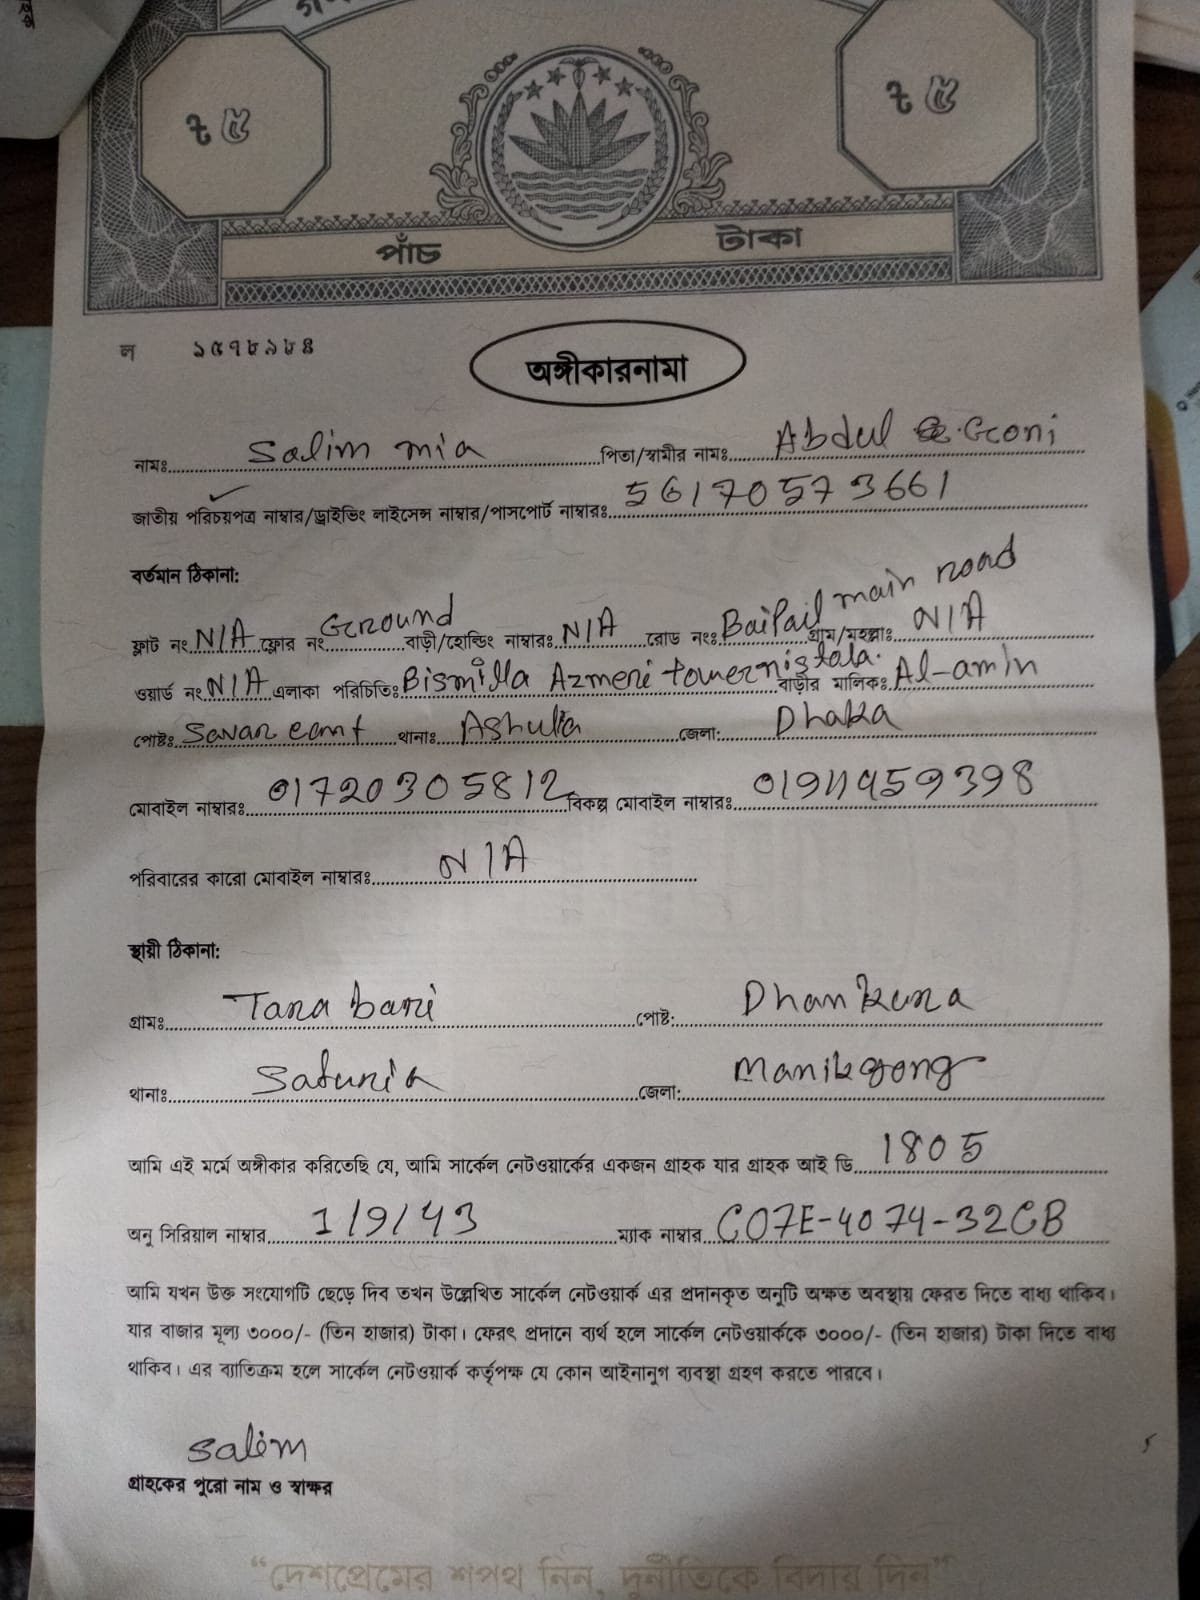 ৳ ৫
৳ ৫
পাঁচ টাকা
ল ১৫৭৮৯৮৪
অঙ্গীকারনামা
নামঃ Salim mia পিতা/স্বামীর নামঃ Abdul Goni
জাতীয় পরিচয়পত্র নাম্বার/ড্রাইভিং লাইসেন্স নাম্বার/পাসপোর্ট নাম্বারঃ 5617057 3661
বর্তমান ঠিকানা:
ফ্লাট নং N/A ফ্লোর নং Ground বাড়ী/হোল্ডিং নাম্বারঃ N/A রোড নংঃ Baipail main road গ্রাম/মহল্লাঃ N/A
ওয়ার্ড নং N/A এলাকা পরিচিতিঃ Bismilla Azmeri tower nistala. বাড়ীর মালিকঃ Al-amin
পোষ্টঃ Savar cant থানাঃ Ashulia জেলা: Dhaka
মোবাইল নাম্বারঃ 01720305812 বিকল্প মোবাইল নাম্বারঃ
পরিবারের কারো মোবাইল নাম্বারঃ N/A
স্থায়ী ঠিকানা:
গ্রামঃ Tara bari পোষ্ট: Dhankura
থানাঃ Saturia জেলা: Manikgong
আমি এই মর্মে অঙ্গীকার করিতেছি যে, আমি সার্কেল নেটওয়ার্কের একজন গ্রাহক যার গ্রাহক আই ডি 1805
অনু সিরিয়াল নাম্বার 1/9/43 ম্যাক নাম্বার C07E-4074-32CB
আমি যখন উক্ত সংযোগটি ছেড়ে দিব তখন উল্লেখিত সার্কেল নেটওয়ার্ক এর প্রদানকৃত অনুটি অক্ষত অবস্থায় ফেরত দিতে বাধ্য থাকিব।
যার বাজার মূল্য ৩০০০/- (তিন হাজার) টাকা। ফেরৎ প্রদানে ব্যর্থ হলে সার্কেল নেটওয়ার্ককে ৩০০০/- (তিন হাজার) টাকা দিতে বাধ্য
থাকিব। এর ব্যাতিক্রম হলে সার্কেল নেটওয়ার্ক কর্তৃপক্ষ যে কোন আইনানুগ ব্যবস্থা গ্রহণ করতে পারবে।
Salim
গ্রাহকের পুরো নাম ও স্বাক্ষর
“দেশপ্রেমের শপথ নিন, দুর্নীতিকে বিদায় দিন”